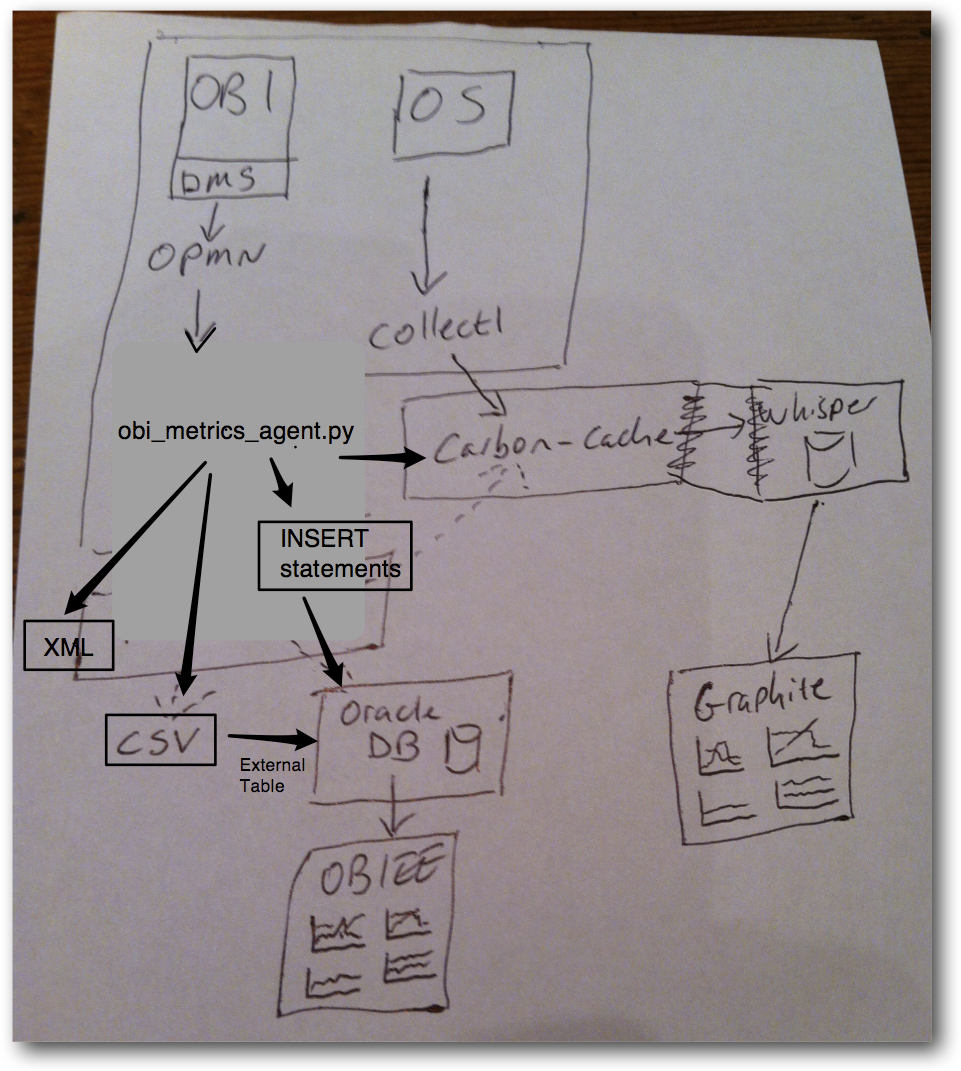 OBI
OS
DMS
OPMN
collectl
obi_metrics_agent.py
Carbon-Cache
Whisper
INSERT
statements
XML
CSV
External
Table
Oracle
DB
Graphite
OBIEE